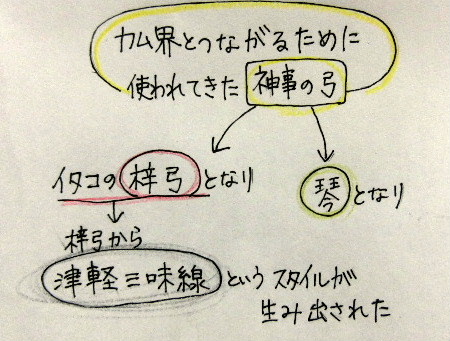 カム界とつながるために
使われてきた 神事の弓
イタコの 梓弓 となり
琴 となり
梓弓から
津軽三味線 という スタイルが
生み出された